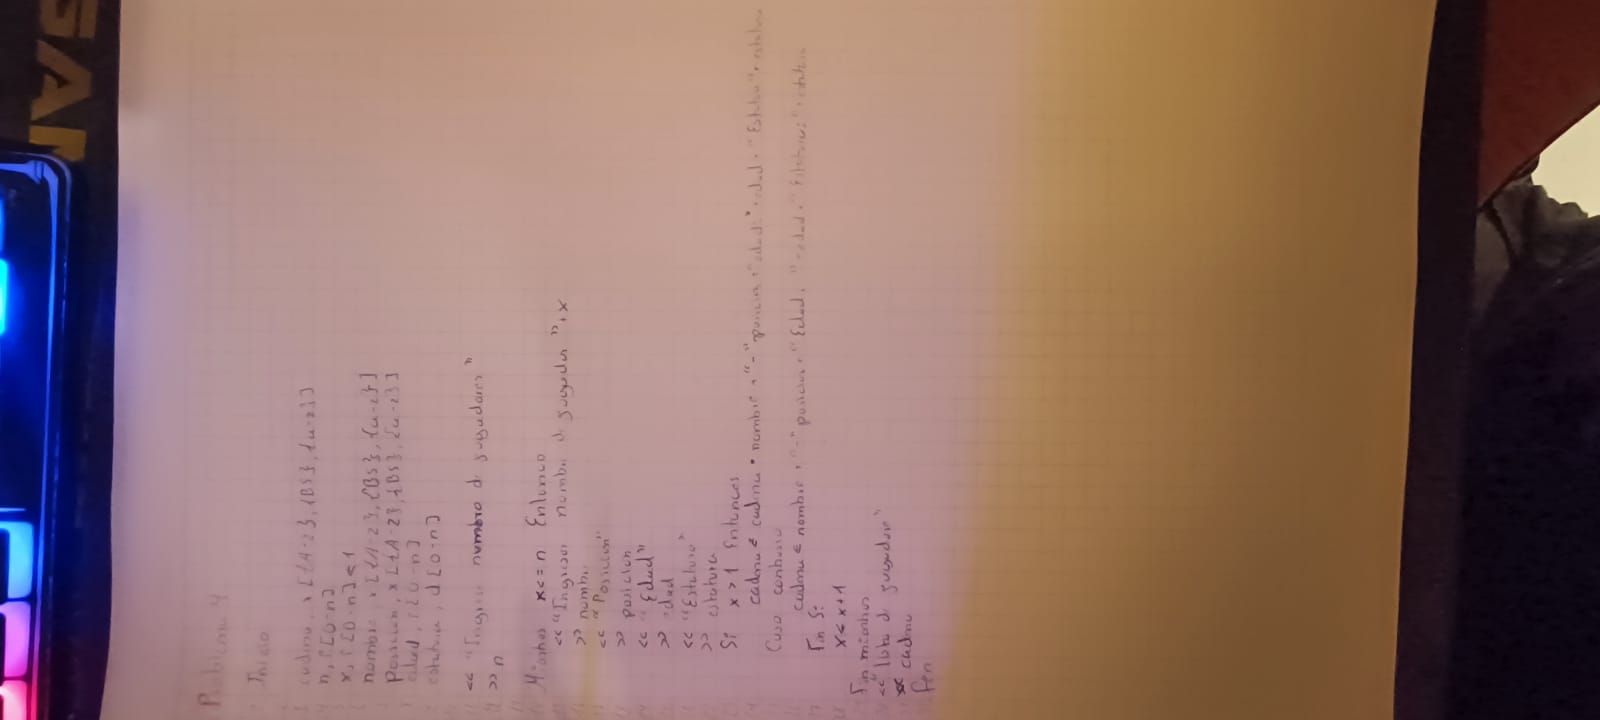 Problema 4
Inicio
cadena, x [{A-Z}, {BS}, {a-z}]
n, i [0-n]
x, i [0-n] ← 1
nombre, x [{A-Z}, {BS}, {a-z}]
Posicion, x [{A-Z}, {BS}, {a-z}]
edad, i [0-n]
estatura, d [0-n]
<< "Ingrese numero d jugadores"
>> n
Mientras x<=n Entonces
<< "Ingrese nombre d jugador" + x
>> nombre
<< "Posicion"
>> posicion
<< "Edad"
>> edad
<< "Estatura"
>> estatura
Si x>1 Entonces
cadena ← cadena + nombre + "-" posicion + "edad:" + edad + "Estatura" + estatura
Caso contrario
cadena ← nombre + "-" posicion + "Edad:" + edad + "Estatura:" + estatura
Fin Si
x ← x+1
Fin mientras
<< "lista d jugador"
<< cadena
fin